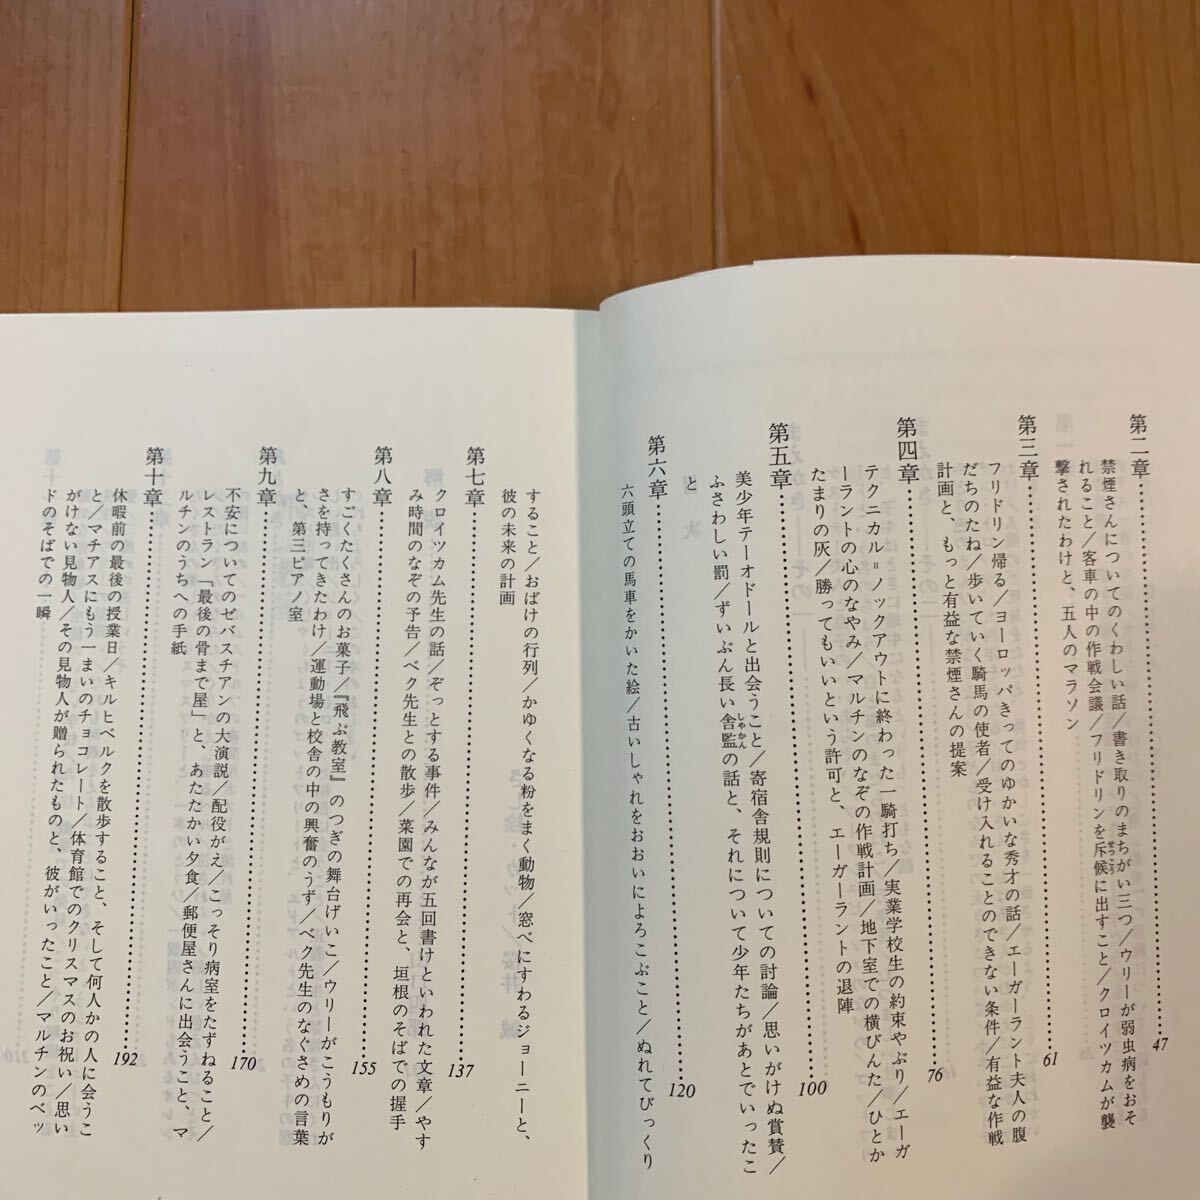 第二章……47
禁煙さんについてのくわしい話／書き取りのまちがい三つ／ウリーが弱虫病をおそ
れること／客車の中の作戦会議／フリドリンを斥候に出すこと／クロイツカムが襲
せっこう
撃されたわけと、五人のマラソン
第三章……61
フリドリン帰る／ヨーロッパきってのゆかいな秀才の話／エーガーラント夫人の腹
だちのたね／歩いていく騎馬の使者／受け入れることのできない条件／有益な作戦
計画と、もっと有益な禁煙さんの提案
第四章……76
テクニカル＝ノックアウトに終わった一騎打ち／実業学校生の約束やぶり／エーガ
ーラントの心のなやみ／マルチンのなぞの作戦計画／地下室での横びんた／ひとか
たまりの灰／勝ってもいいという許可と、エーガーラントの退陣
第五章……100
美少年テーオドールと出会うこと／寄宿舎規則についての討論／思いがけぬ賞賛／
ふさわしい罰／ずいぶん長い舎監の話と、それについて少年たちがあとでいったこ
しゃかん
と
第六章……120
六頭立ての馬車をかいた絵／古いしゃれをおおいによろこぶこと／ぬれてびっくり
すること／おばけの行列／かゆくなる粉をまく動物／窓べにすわるジョーニーと、
彼の未来の計画
第七章……137
クロイツカム先生の話／ぞっとする事件／みんなが五回書けといわれた文章／やす
み時間のなぞの予告／ベク先生との散歩／菜園での再会と、垣根のそばでの握手
第八章……155
すごくたくさんのお菓子／『飛ぶ教室』のつぎの舞台げいこ／ウリーがこうもりが
さを持ってきたわけ／運動場と校舎の中の興奮のうず／ベク先生のなぐさめの言葉
と、第三ピアノ室
第九章……170
不安についてのゼバスチアンの大演説／配役がえ／こっそり病室をたずねること／
レストラン「最後の骨まで屋」と、あたたかい夕食／郵便屋さんに出会うこと、マ
ルチンのうちへの手紙
第十章……192
休暇前の最後の授業日／キルヒベルクを散歩すること、そして何人かの人に会うこ
と／マチアスにもう一まいのチョコレート／体育館でのクリスマスのお祝い／思い
がけない見物人／その見物人が贈られたものと、彼がいったこと／マルチンのベッ
ドのそばでの一瞬